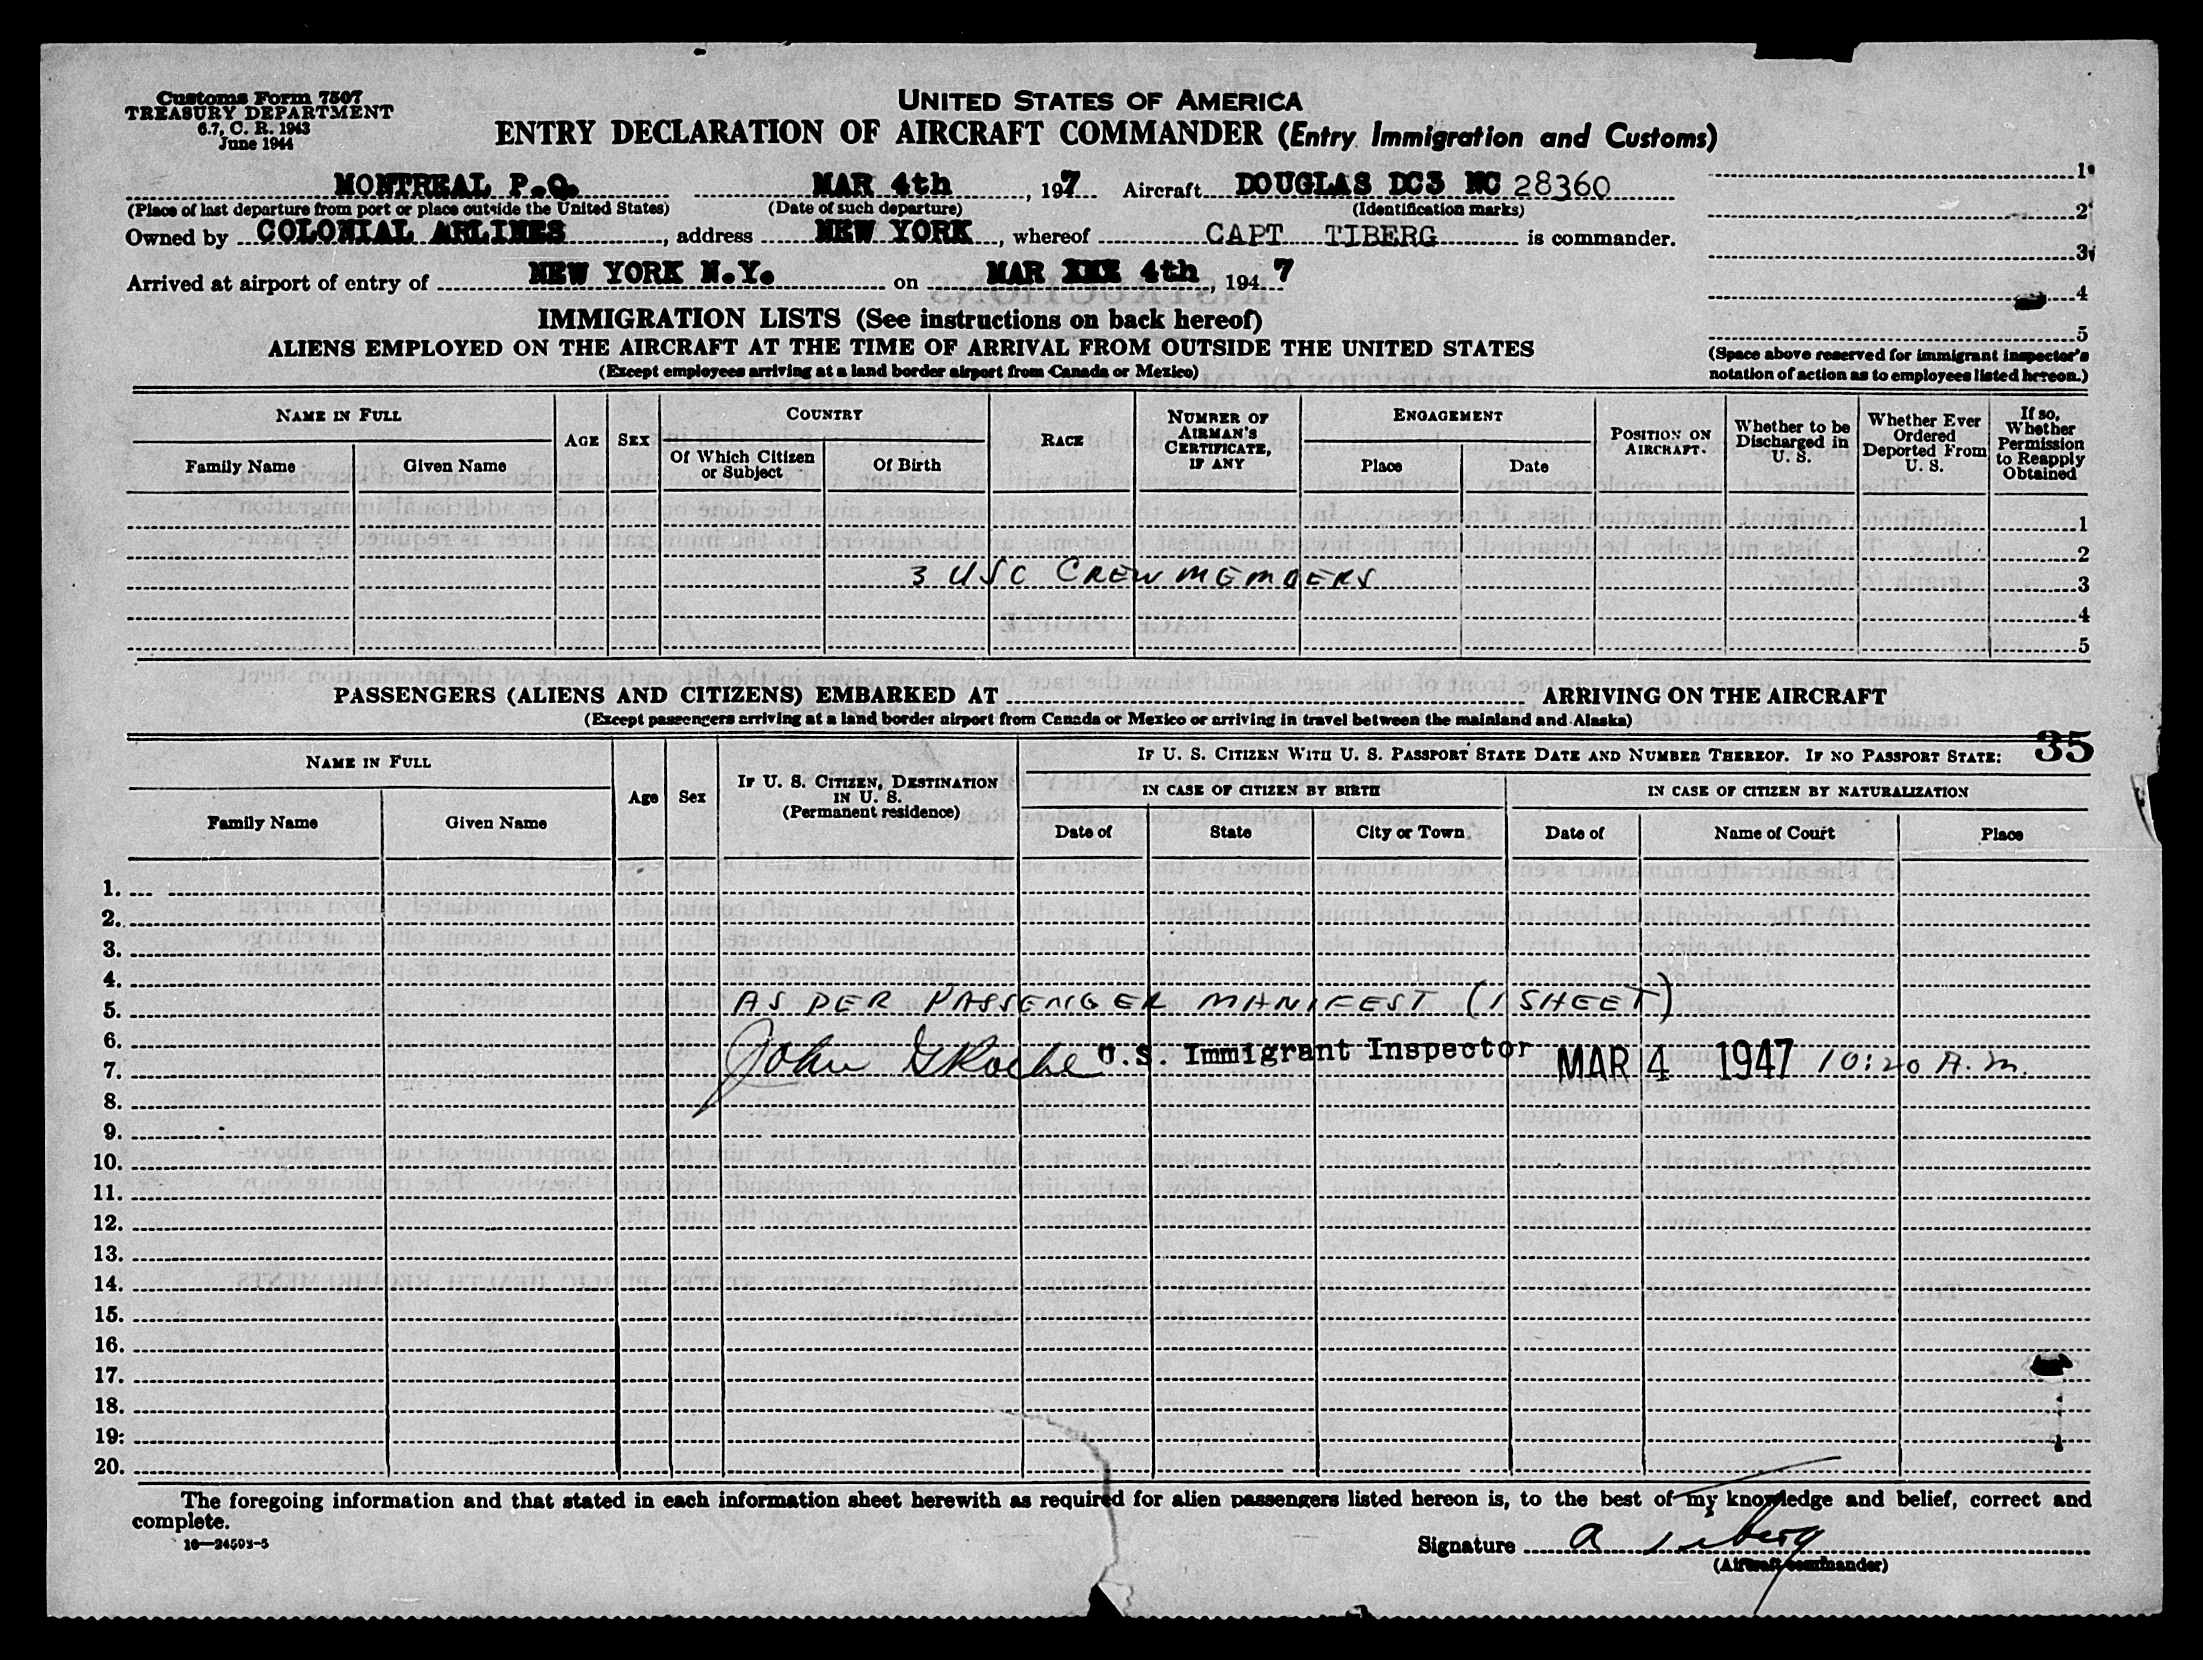 Customs Form 7507
TREASURY DEPARTMENT
6.7, C. R. 1943
June 1944
UNITED STATES OF AMERICA
ENTRY DECLARATION OF AIRCRAFT COMMANDER (Entry Immigration and Customs)
MONTREAL P.Q. MAR 4th, 197 Aircraft DOUGLAS DC3 NC 28360
(Place of last departure from port or place outside the United States) (Date of such departure) (Identification marks)
Owned by COLONIAL ARLINES, address NEW YORK, whereof CAPT TIBERG is commander.
Arrived at airport of entry of NEW YORK N.Y. on MAR XXX 4th, 1947
1
2
3
4
5
(Space above reserved for immigrant inspector's
notation of action as to employees listed hereon.)
IMMIGRATION LISTS (See instructions on back hereof)
ALIENS EMPLOYED ON THE AIRCRAFT AT THE TIME OF ARRIVAL FROM OUTSIDE THE UNITED STATES
(Except employees arriving at a land border airport from Canada or Mexico)
NAME IN FULL
Family Name Given Name
AGE
SEX
COUNTRY
Of Which Citizen or Subject
Of Birth
RACE
NUMBER OF AIRMAN'S CERTIFICATE, IF ANY
ENGAGEMENT
Place Date
POSITION ON AIRCRAFT.
Whether to be Discharged in U. S.
Whether Ever Ordered Deported From U. S.
If so, Whether Permission to Reapply Obtained
1
2
3 USC CREW MEMBERS 3
4
5
PASSENGERS (ALIENS AND CITIZENS) EMBARKED AT ARRIVING ON THE AIRCRAFT
(Except passengers arriving at a land border airport from Canada or Mexico or arriving in travel between the mainland and Alaska)
NAME IN FULL
Family Name Given Name
Age
Sex
IF U. S. CITIZEN, DESTINATION IN U. S.
(Permanent residence)
IF U. S. CITIZEN WITH U. S. PASSPORT STATE DATE AND NUMBER THEREOF. IF NO PASSPORT STATE: 35
IN CASE OF CITIZEN BY BIRTH IN CASE OF CITIZEN BY NATURALIZATION
Date of State City or Town Date of Name of Court Place
1.
2.
3.
4.
5. AS PER PASSENGER MANIFEST (1 SHEET)
6.
7. John G Roche U.S. Immigrant Inspector MAR 4 1947 10:20 A.M.
8.
9.
10.
11.
12.
13.
14.
15.
16.
17.
18.
19.
20.
The foregoing information and that stated in each information sheet herewith as required for alien passengers listed hereon is, to the best of my knowledge and belief, correct and
complete.
Signature A Tiberg
(Aircraft commander)